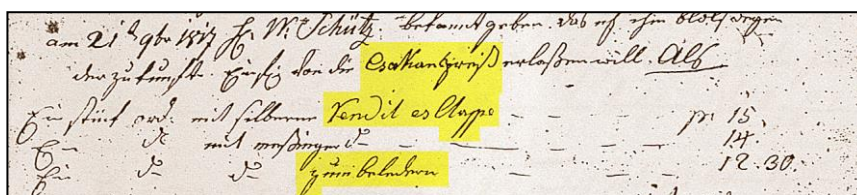 am 21ᵗ 9br 1817 H. Wm Schütz. bekannt geben. das ich ihm bloß wegen
der zukunft. von die Csakan Preiß erlaßen will. Als
Ein stück ord: mit silberne Vendil es Clapp – – – p. 15.
Ein do mit meßinger do – – – – – 14.
Ein do do zum beledern – – – 12.30.